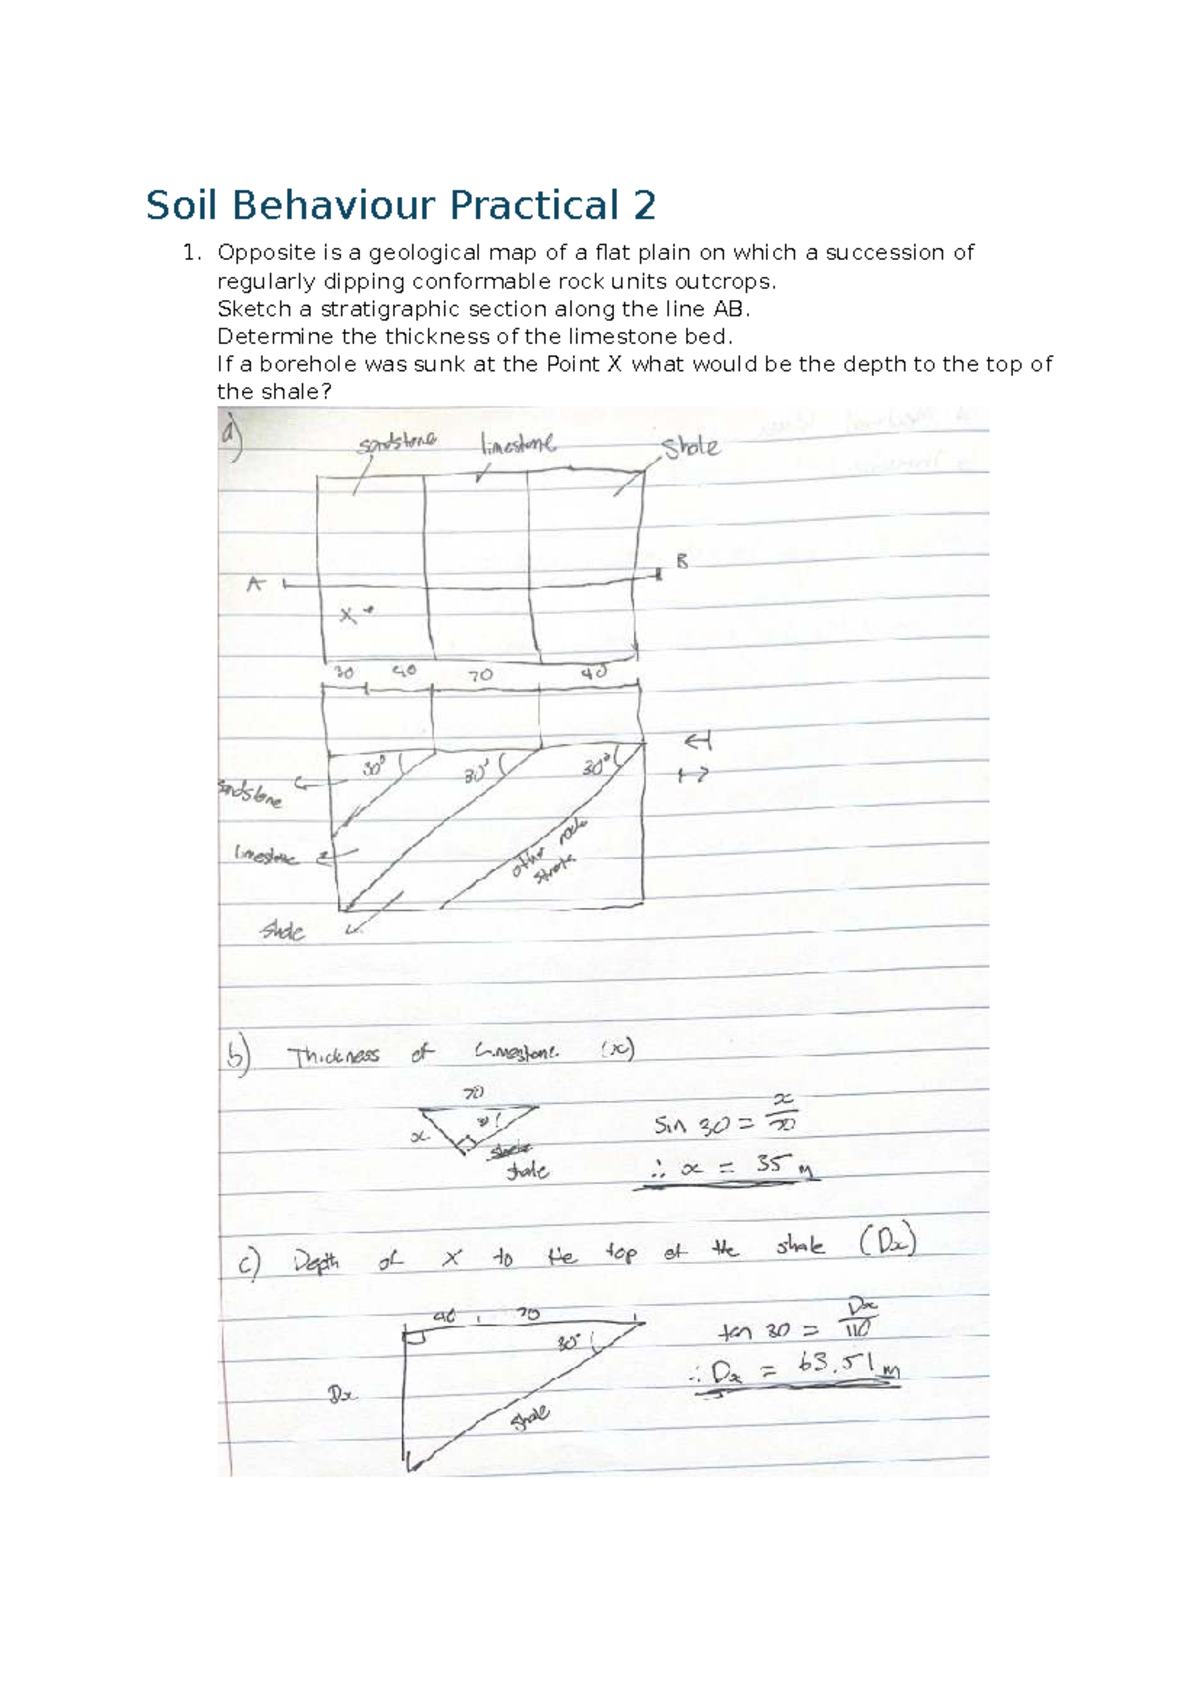 Soil Behaviour Practical 2
1. Opposite is a geological map of a flat plain on which a succession of
regularly dipping conformable rock units outcrops.
Sketch a stratigraphic section along the line AB.
Determine the thickness of the limestone bed.
If a borehole was sunk at the Point X what would be the depth to the top of
the shale?
a)
sandstone limestone Shale
A B
X
30 40 70 40
30° 30° 30°
sandstone
limestone
other rock
strata
shale
b) Thickness of Limestone (x)
70
x
shale
sin 30 = x/70
∴ x = 35 m
c) Depth of X to the top of the shale (Dx)
40 70
30°
Dx
shale
tan 30 = Dx/110
∴ Dx = 63.51 m